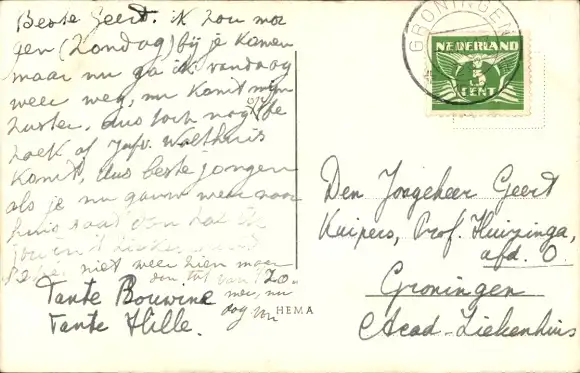 Beste Geert. ik zou mor
gen (Zondag) bij je komen
maar nu ga ik vandaag
weer weg, nu komt mijn
zuster, dus toch nog be
zoek of Jufv. Wolthuis
komt, dus beste jongen
als je nu gauw weer naar
huis gaat dan zal ik
je
niet weer zien maar
dan tot van 't zo-
mer, nu
dag
Tante Bouwine
Tante Hille.
HEMA
GRONINGEN
NEDERLAND
5
CENT
Den Jongeheer Geert
Kuipers, Prof. Huizinga,
afd. O.
Groningen
Acad-Ziekenhuis